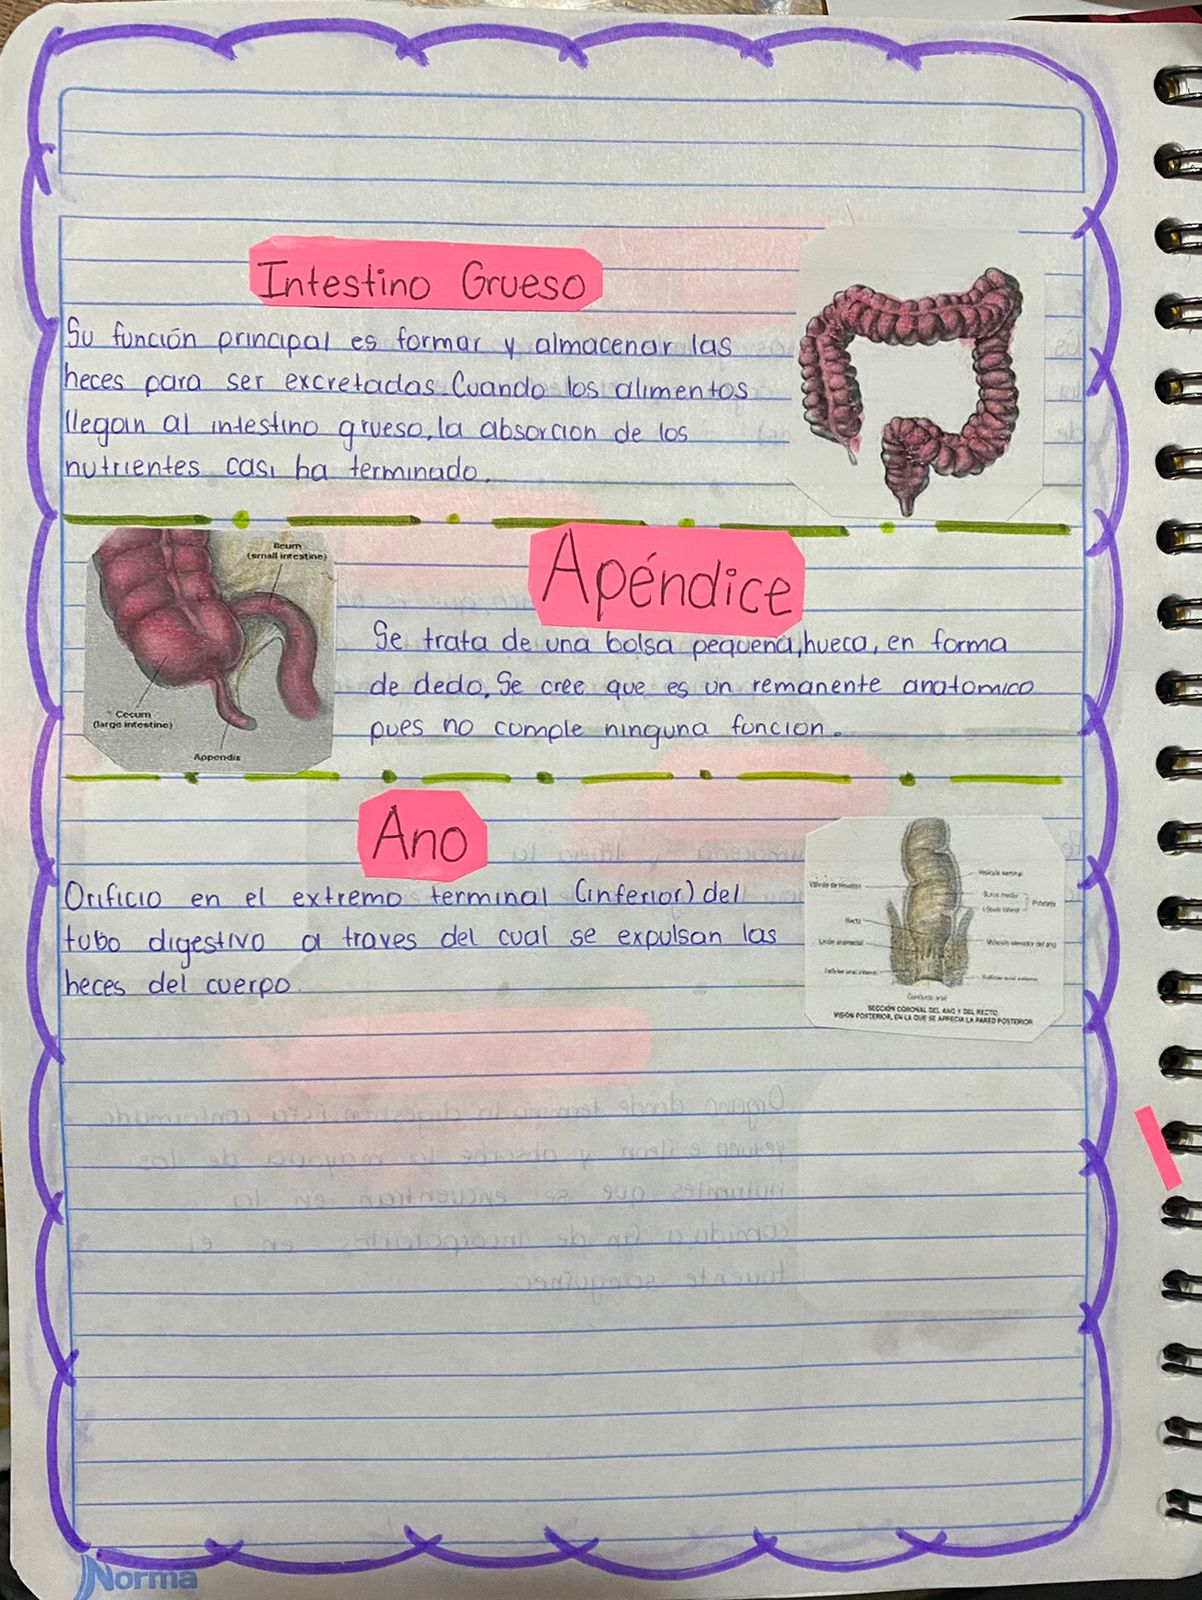 Intestino Grueso
Su función principal es formar y almacenar las
heces para ser excretadas. Cuando los alimentos
llegan al intestino grueso, la absorcion de los
nutrientes casi ha terminado.
Ileum
(small intestine)
Cecum
(large intestine)
Appendix
Apéndice
Se trata de una bolsa pequeña, hueca, en forma
de dedo. Se cree que es un remanente anatomico
pues no cumple ninguna funcion.
Ano
Orificio en el extremo terminal (inferior) del
tubo digestivo a traves del cual se expulsan las
heces del cuerpo.
Vesícula seminal
Válvula de Houston
Próstata
Lóbulo lateral
Recto
Unión anorrectal
Músculo elevador del ano
Conducto anal
SECCIÓN CORONAL DEL ANO Y DEL RECTO.
VISIÓN POSTERIOR, EN LA QUE SE APRECIA LA PARED POSTERIOR
Norma